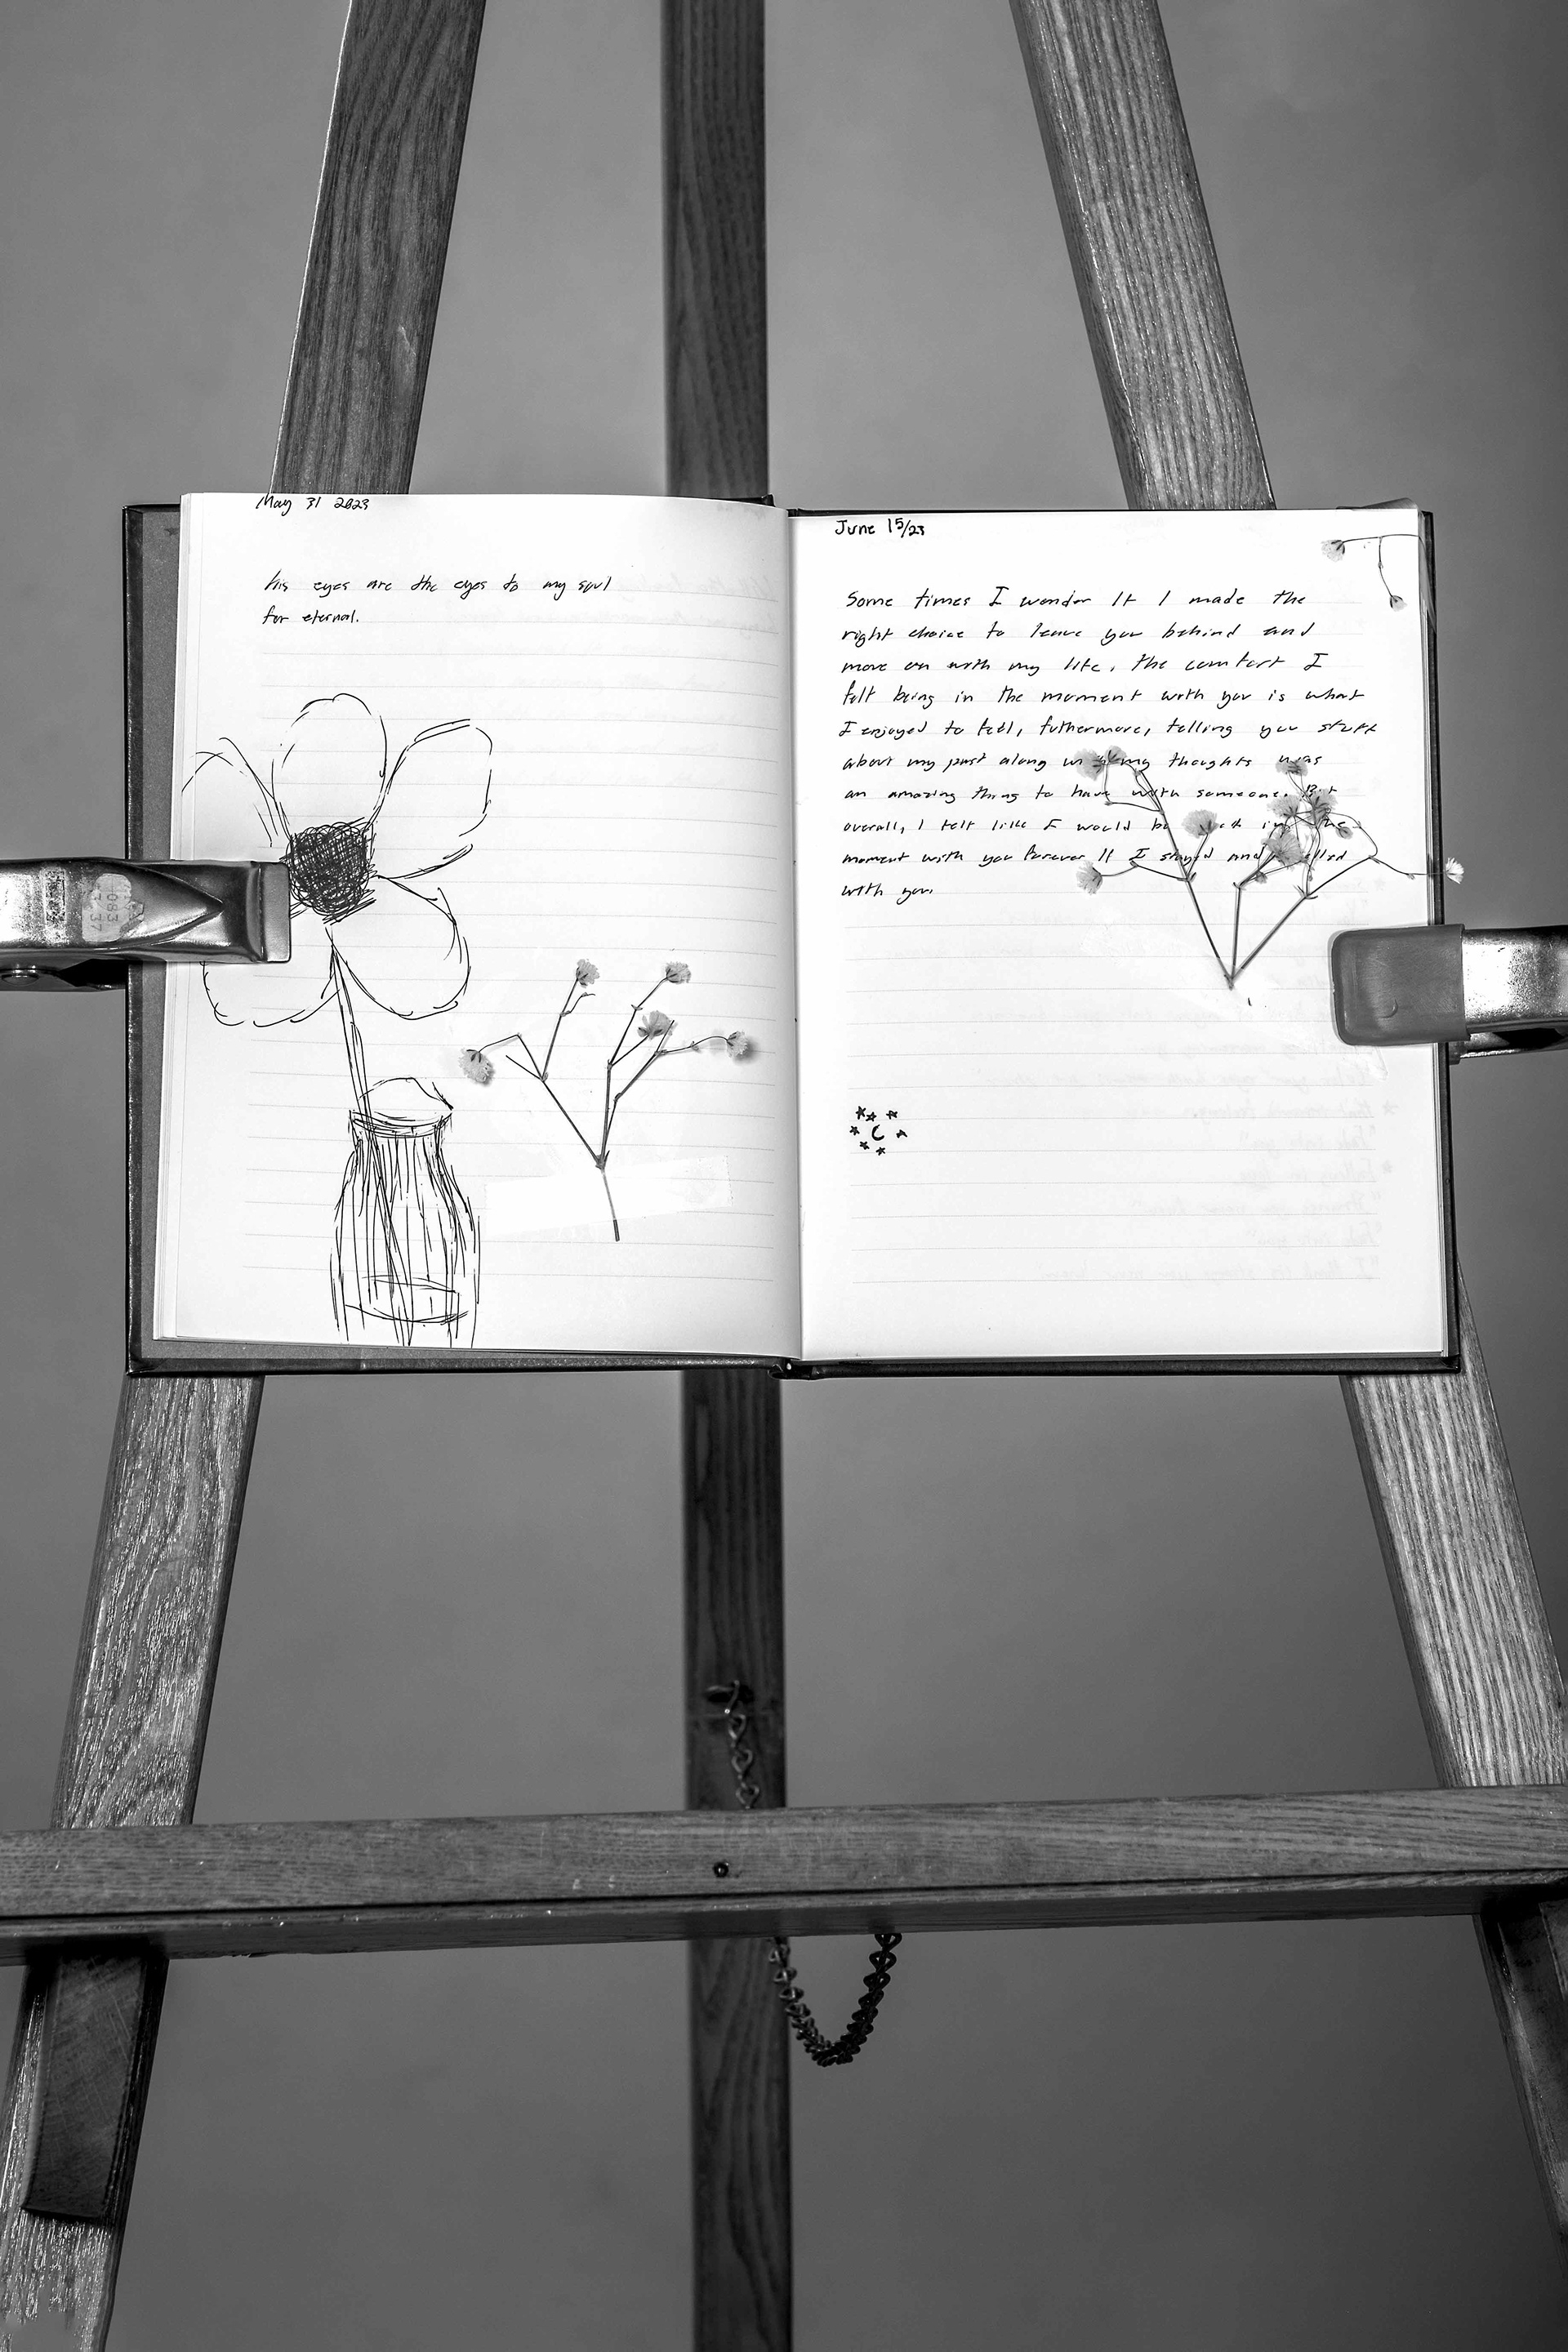 May 31 2023
his eyes are the eyes to my soul
for eternal.
June 15/23
Some times I wonder If I made the
right choice to leave you behind and
move on with my life, the comfort I
felt being in the moment with you is what
I enjoyed to feel, futhermore, telling you stuff
about my past along my thoughts was
an amazing thing to have with someone. But
overall, I felt like I would be in the
moment with you forever If I stayed and
with you.